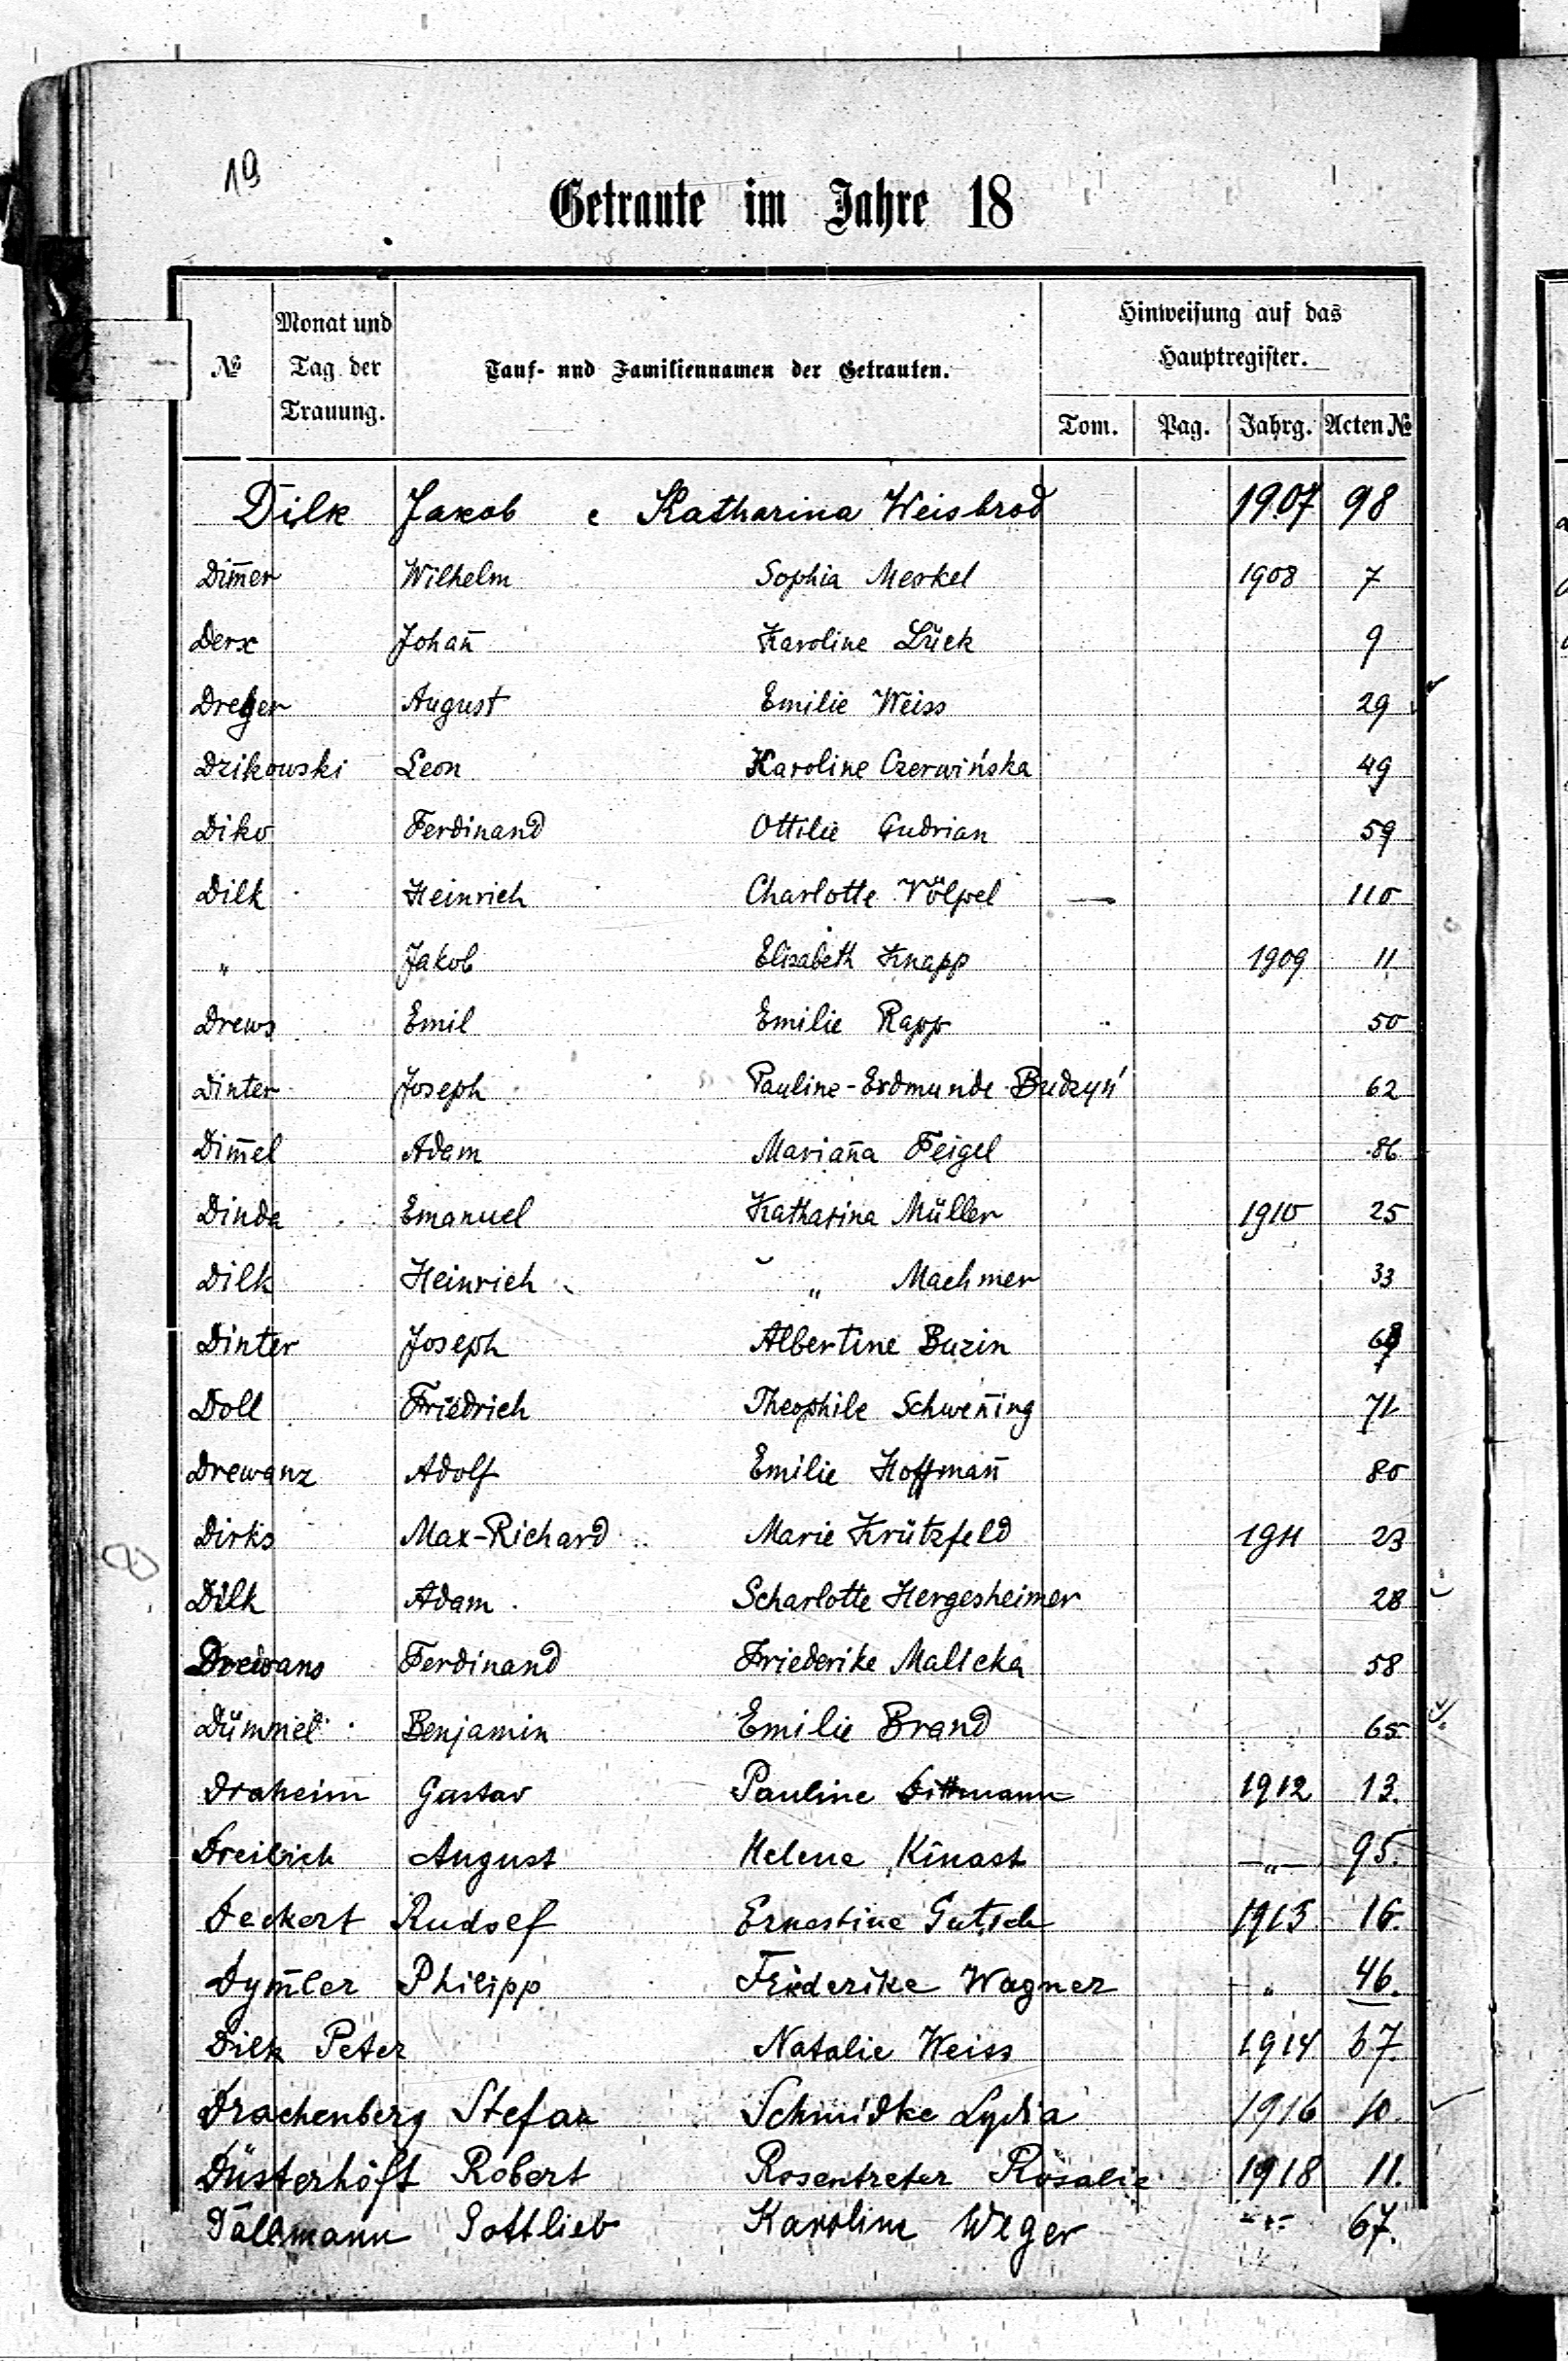 19
Getraute im Jahre 18
№ Monat und Tag der Trauung. Tauf- und Familiennamen der Getrauten. Hinweisung auf das Hauptregister.
Tom. Pag. Jahrg. Acten №
Dilk Jakob e Katharina Weisbrod 1907 98
Dim̄er Wilhelm Sophia Merkel 1908 7
Derx Johan̄ Karoline Lück 9
Dreger August Emilie Weiss 29
Dzikowski Leon Karoline Czerwińska 49
Diko Ferdinand Ottilie Gudrian 59
Dilk Heinrich Charlotte Völpel — 110
" Jakob Elisabeth Knapp 1909 11
Drews Emil Emilie Rapp 50
Dinter Joseph Pauline-Erdmunde Budzyń 62
Dim̄el Adam Marian̄a Feigel 86
Dinda Emanuel Katharina Müller 1910 25
Dilk Heinrich " Machmer 33
Dinter Joseph Albertine Buzin
Doll Friedrich Theophile Schwen̄ing 71
Drewanz Adolf Emilie Hoffman̄ 80
Dirks Max-Richard Marie Krützfeld 1911 23
Dilk Adam Scharlotte Hergesheimer 28
Drewans Ferdinand Friederike Malicka 58
Dümmel Benjamin Emilie Brand 65
Draheim Gustav Pauline Dittmann 1912 13.
Dreibich August Helene Kinast —"— 95.
Deckert Rudolf Ernestine Gutsch 1913 16.
Dym̄ler Philipp Friderike Wagner " 46.
Dilk Peter Natalie Weiss 1914 67.
Drachenberg Stefan Schmidke Lydia 1916 10.
Düsterhöft Robert Rosentreter Rosalie 1918 11.
Dallmann Gottlieb Karoline Weger -"- 67.